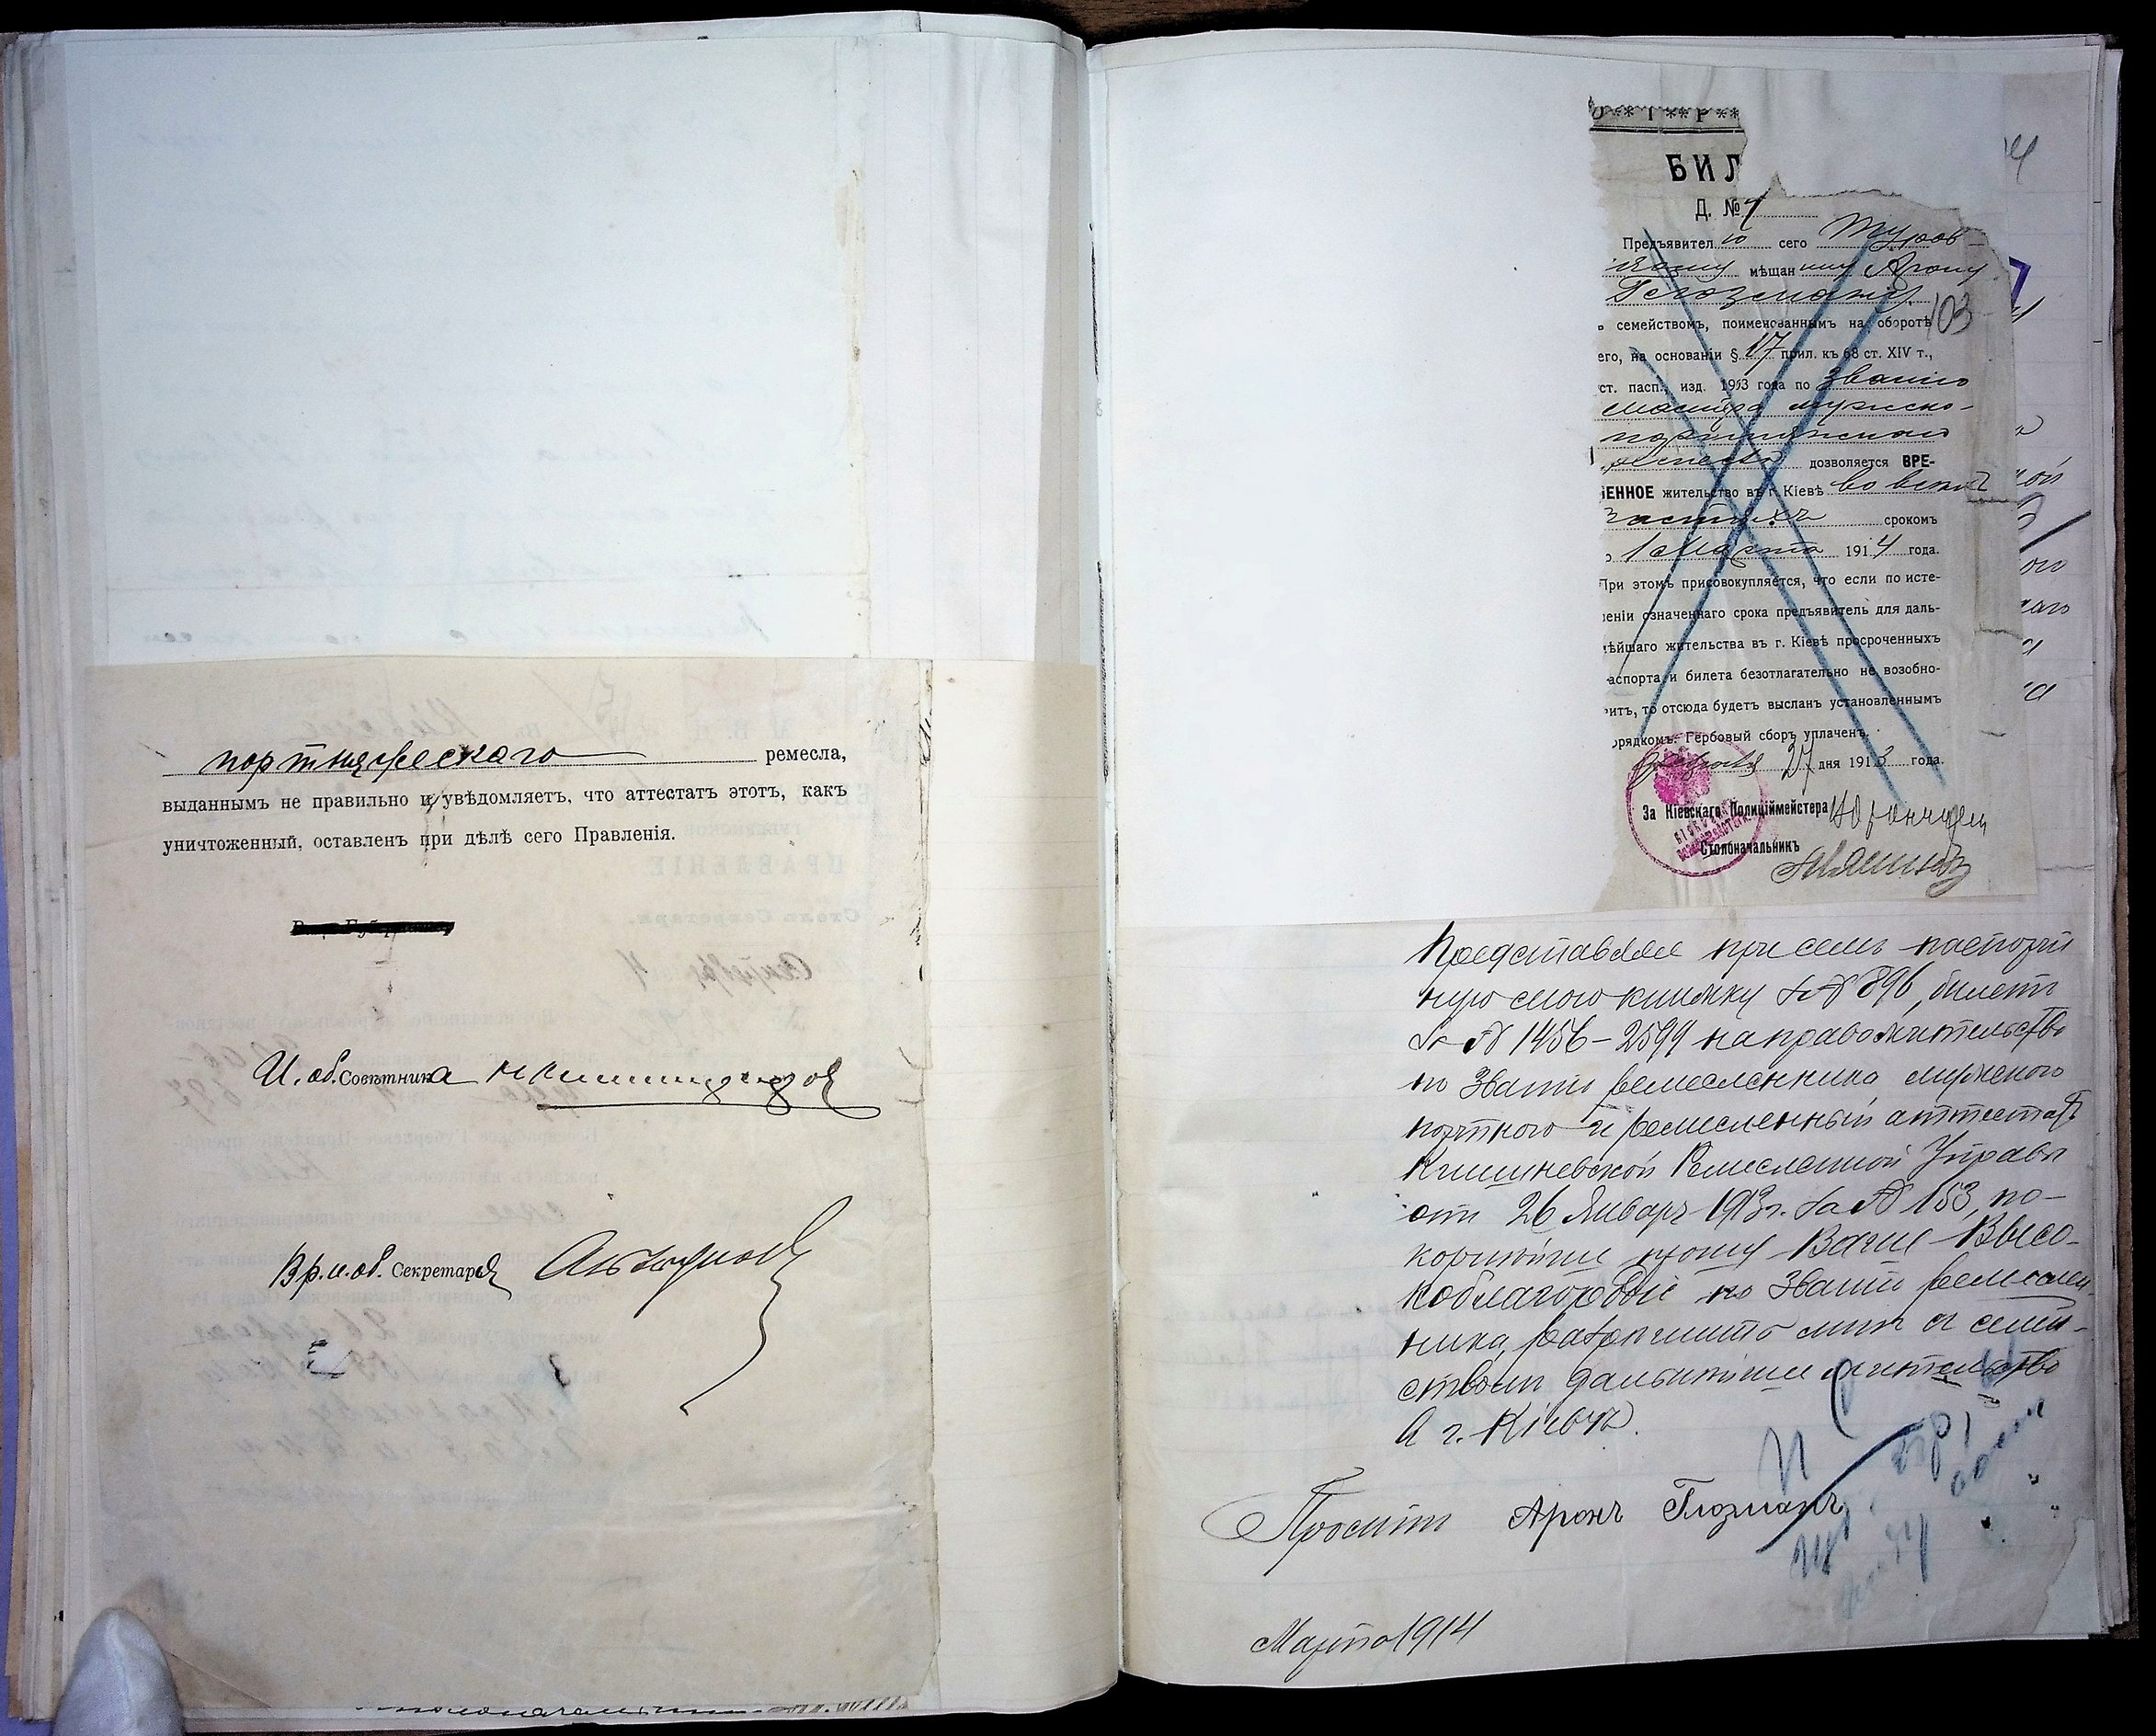 портняжескаго ремесла,
выданнымъ не правильно и увѣдомляетъ, что аттестатъ этотъ, какъ
уничтоженный, оставленъ при дѣлѣ сего Правленія.
И. об. Совѣтника
Вр. и. об. Секретаря
БИЛ
Д. №
Предъявител ю сего Туров-
скому мѣщан ину Арону
Глозману
семействомъ, поименованнымъ на оборотѣ
103
его, на основаніи § 17 прил. къ 68 ст. XIV т.,
ст. пасп., изд. 1903 года по званію
мастера мужско-
портняжскаго
дозволяется ВРЕ-
ЕННОЕ жительство въ г. Кіевѣ во всѣхъ
частяхъ срокомъ
1 Марта 1914 года.
При этомъ присовокупляется, что если по исте-
еніи означеннаго срока предъявитель для даль-
ѣйшаго жительства въ г. Кіевѣ просроченныхъ
аспорта и билета безотлагательно не возобно-
итъ, то отсюда будетъ высланъ установленнымъ
орядкомъ. Гербовый сборъ уплаченъ.
Февраля 27 дня 1913 года.
За Кіевскаго Полиціймейстера
Столоначальникъ
Представляя при семъ паспорт
ную мою книжку за № 896, билетъ
за № 1456-2599 на правожительство
по званію ремесленника мужского
портного и ремесленный аттестатъ
Кишиневской Ремесленной Управы
отъ 26 Января 1913 г. за № 153, по-
корнѣйше прошу Ваше Высо-
коблагородіе по званію ремеслен-
ника, разрѣшить мнѣ съ семей-
ствомъ дальнѣйшее жительство
в г. Кіевѣ.
Проситъ Аронъ Глозманъ
Марта 1914